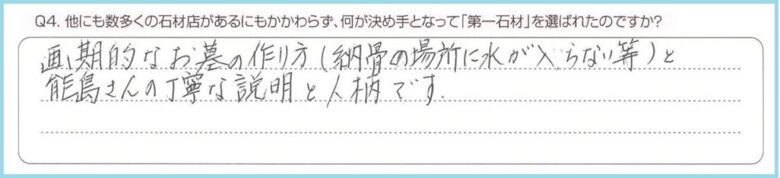 Q4. 他にも数多くの石材店があるにもかかわらず、何が決め手となって「第一石材」を選ばれたのですか?
画期的なお墓の作り方(納骨の場所に水が入らない等)と
能島さんの丁寧な説明と人柄です.